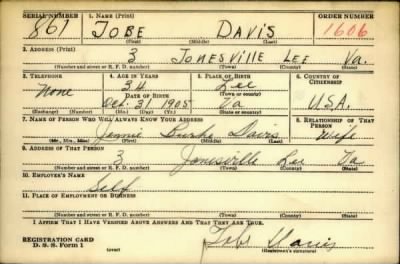 SERIAL NUMBER 1. NAME (Print) ORDER NUMBER
861 JOBE DAVIS 1606
(First) (Middle) (Last)
2. ADDRESS (Print)
3 JONESVILLE LEE Va.
(Number and street or R. F. D. number) (Town) (County) (State)
3. TELEPHONE 4. AGE IN YEARS 5. PLACE OF BIRTH 6. COUNTRY OF CITIZENSHIP
None 34 Lee
DATE OF BIRTH (Town or county)
Oct. 31 1905 Va U.S.A.
(Exchange) (Number) (Mo.) (Day) (Yr.) (State or country)
7. NAME OF PERSON WHO WILL ALWAYS KNOW YOUR ADDRESS 8. RELATIONSHIP OF THAT PERSON
Jennie Burke Davis Wife
(Mr., Mrs., Miss) (First) (Middle) (Last)
9. ADDRESS OF THAT PERSON
3 Jonesville Lee Va
(Number and street or R. F. D. number) (Town) (County) (State)
10. EMPLOYER'S NAME
Self
11. PLACE OF EMPLOYMENT OR BUSINESS
(Number and street or R. F. D. number) (Town) (County) (State)
I AFFIRM THAT I HAVE VERIFIED ABOVE ANSWERS AND THAT THEY ARE TRUE.
REGISTRATION CARD
D. S. S. Form 1 (over) Jobe Davis
(Registrant's signature)